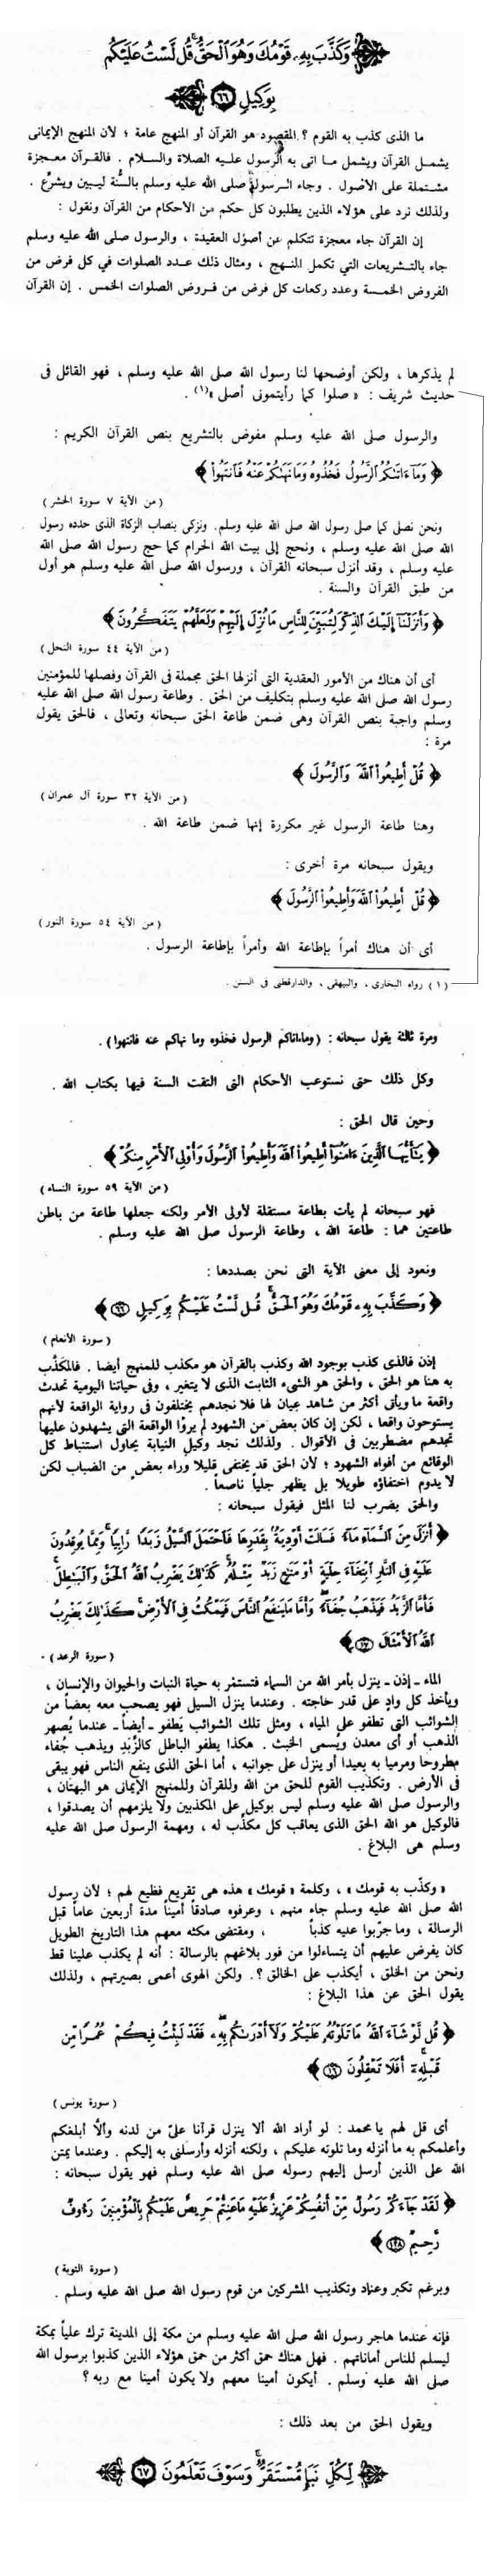 وَكَذَّبَ بِهِۦ قَوْمُكَ وَهُوَ ٱلْحَقُّ ۚ قُل لَّسْتُ عَلَيْكُم
بِوَكِيلٍ ٦٦
ما الذى كذب به القوم ؟ المقصود هو القرآن أو المنهج عامة ؛ لأن المنهج الإيمانى
يشمل القرآن ويشمل ما اتى به الرسول عليه الصلاة والسلام . فالقرآن معجزة
مشتملة على الأصول . وجاء الرسول صلى الله عليه وسلم بالسُّنة ليبين ويشرِّع .
ولذلك نرد على هؤلاء الذين يطلبون كل حكم من الأحكام من القرآن ونقول :
إن القرآن جاء معجزة تتكلم عن أصول العقيدة ، والرسول صلى الله عليه وسلم
جاء بالتشريعات التي تكمل المنهج ، ومثال ذلك عدد الصلوات في كل فرض من
الفروض الخمسة وعدد ركعات كل فرض من فروض الصلوات الخمس . إن القرآن
لم يذكرها ، ولكن أوضحها لنا رسول الله صلى الله عليه وسلم ، فهو القائل فى
حديث شريف : « صلوا كما رأيتمونى أصلى »(١) .
والرسول صلى الله عليه وسلم مفوض بالتشريع بنص القرآن الكريم :
﴿ وَمَآ ءَاتَىٰكُمُ ٱلرَّسُولُ فَخُذُوهُ وَمَا نَهَىٰكُمْ عَنْهُ فَٱنتَهُوا۟ ﴾
( من الآية ٧ سورة الحشر )
ونحن نصلى كما صلى رسول الله صلى الله عليه وسلم. ونزكى بنصاب الزكاة الذى حدده رسول
الله صلى الله عليه وسلم ، ونحج إلى بيت الله الحرام كما حج رسول الله صلى الله
عليه وسلم ، وقد أنزل سبحانه القرآن ، ورسول الله صلى الله عليه وسلم هو أول
من طبق القرآن والسنة .
﴿ وَأَنزَلْنَآ إِلَيْكَ ٱلذِّكْرَ لِتُبَيِّنَ لِلنَّاسِ مَا نُزِّلَ إِلَيْهِمْ وَلَعَلَّهُمْ يَتَفَكَّرُونَ ﴾
( من الآية ٤٤ سورة النحل )
أى أن هناك من الأمور العقدية التى أنزلها الحق مجملة فى القرآن وفصلها للمؤمنين
رسول الله صلى الله عليه وسلم بتكليف من الحق . وطاعة رسول الله صلى الله عليه
وسلم واجبة بنص القرآن وهى ضمن طاعة الحق سبحانه وتعالى ، فالحق يقول
مرة :
﴿ قُلْ أَطِيعُوا۟ ٱللَّهَ وَٱلرَّسُولَ ﴾
( من الآية ٣٢ سورة آل عمران )
وهنا طاعة الرسول غير مكررة إنها ضمن طاعة الله .
ويقول سبحانه مرة أخرى :
﴿ قُلْ أَطِيعُوا۟ ٱللَّهَ وَأَطِيعُوا۟ ٱلرَّسُولَ ﴾
( من الآية ٥٤ سورة النور )
أى أن هناك أمراً بإطاعة الله وأمراً بإطاعة الرسول .
( ١ ) رواه البخارى ، والبيهقى ، والدارقطنى فى السنن .
ومرة ثالثة يقول سبحانه : (وماءاتاكم الرسول فخذوه وما نهاكم عنه فانتهوا) .
وكل ذلك حتى نستوعب الأحكام التى التقت السنة فيها بكتاب الله .
وحين قال الحق :
﴿ يَـٰٓأَيُّهَا ٱلَّذِينَ ءَامَنُوٓا۟ أَطِيعُوا۟ ٱللَّهَ وَأَطِيعُوا۟ ٱلرَّسُولَ وَأُو۟لِى ٱلْأَمْرِ مِنكُمْ ﴾
( من الآية ٥٩ سورة النساء )
فهو سبحانه لم يأت بطاعة مستقلة لأولى الأمر ولكنه جعلها طاعة من باطن
طاعتين هما : طاعة الله ، وطاعة الرسول صلى الله عليه وسلم .
ونعود إلى معنى الآية التى نحن بصددها :
﴿ وَكَذَّبَ بِهِۦ قَوْمُكَ وَهُوَ ٱلْحَقُّ ۚ قُل لَّسْتُ عَلَيْكُم بِوَكِيلٍ ٦٦ ﴾
( سورة الأنعام )
إذن فالذى كذب بوجود الله وكذب بالقرآن هو مكذب للمنهج أيضا . فالمكذَّب
به هنا هو الحق ، والحق هو الشىء الثابت الذى لا يتغير ، وفى حياتنا اليومية تحدث
واقعة ما ويأتى أكثر من شاهد عِيان لها فلا نجدهم يختلفون فى رواية الواقعة لأنهم
يستوحون واقعا ، لكن إن كان بعض من الشهود لم يروْا الواقعة التى يشهدون عليها
تجدهم مضطربين فى الأقوال . ولذلك نجد وكيل النيابة يحاول استنباط كل
الوقائع من أفواه الشهود ؛ لأن الحق قد يختفى قليلا وراء بعض من الضباب لكن
لا يدوم اختفاؤه طويلا بل يظهر جلياً ناصعاً .
والحق يضرب لنا المثل فيقول سبحانه :
﴿ أَنزَلَ مِنَ ٱلسَّمَآءِ مَآءً فَسَالَتْ أَوْدِيَةٌۢ بِقَدَرِهَا فَٱحْتَمَلَ ٱلسَّيْلُ زَبَدًا رَّابِيًا ۚ وَمِمَّا يُوقِدُونَ
عَلَيْهِ فِى ٱلنَّارِ ٱبْتِغَآءَ حِلْيَةٍ أَوْ مَتَـٰعٍ زَبَدٌ مِّثْلُهُۥ ۚ كَذَٰلِكَ يَضْرِبُ ٱللَّهُ ٱلْحَقَّ وَٱلْبَـٰطِلَ ۚ
فَأَمَّا ٱلزَّبَدُ فَيَذْهَبُ جُفَآءً ۖ وَأَمَّا مَا يَنفَعُ ٱلنَّاسَ فَيَمْكُثُ فِى ٱلْأَرْضِ ۚ كَذَٰلِكَ يَضْرِبُ
ٱللَّهُ ٱلْأَمْثَالَ ١٧ ﴾
( سورة الرعد )
الماء ـ إذن ـ ينزل بأمر الله من السماء فتستمر به حياة النبات والحيوان والإنسان ،
ويأخذ كل وادٍ على قدر حاجته . وعندما ينزل السيل فهو يصحب معه بعضاً من
الشوائب التى تطفو على المياه ، ومثل تلك الشوائب يَطفو ـ أيضاً ـ عندما يُصهر
الذهب أو أى معدن ويسمى الخبث . هكذا يطفو الباطل كالزَّبَدِ ويذهب جُفاء
مطروحا ومرميا به بعيدا أو ينزل على جوانبه ، أما الحق الذى ينفع الناس فهو يبقى
فى الأرض . وتكذيب القوم للحق من الله وللقرآن وللمنهج الإيمانى هو البهتان ،
والرسول صلى الله عليه وسلم ليس بوكيل على المكذبين ولا يلزمهم أن يصدقوا ،
فالوكيل هو الله الحق الذى يعاقب كل مكذّب له ، ومهمة الرسول صلى الله عليه
وسلم هى البلاغ .
« وكذّب به قومك » ، وكلمة « قومك » هذه هى تقريع فظيع لهم ؛ لأن رسول
الله صلى الله عليه وسلم جاء منهم ، وعرفوه صادقاً أميناً مدة أربعين عاماً قبل
الرسالة ، وما جرّبوا عليه كذباً ، ومقتضى مكثه معهم هذا التاريخ الطويل
كان يفرض عليهم أن يتساءلوا من فور بلاغهم بالرسالة : أنه لم يكذب علينا قط
ونحن من الخلق ، أيكذب على الخالق ؟. ولكن الهوى أعمى بصيرتهم ، ولذلك
يقول الحق عن هذا البلاغ :
﴿ قُل لَّوْ شَآءَ ٱللَّهُ مَا تَلَوْتُهُۥ عَلَيْكُمْ وَلَآ أَدْرَىٰكُم بِهِۦ ۖ فَقَدْ لَبِثْتُ فِيكُمْ عُمُرًا مِّن
قَبْلِهِۦٓ ۚ أَفَلَا تَعْقِلُونَ ١٦ ﴾
( سورة يونس )
أى قل لهم يا محمد : لو أراد الله ألا ينزل قرآنا علىّ من لدنه وألّا أبلغكم
وأعلمكم به ما أنزله وما تلوته عليكم ، ولكنه أنزله وأرسلنى به إليكم . وعندما يمتن
الله على الذين أرسل إليهم رسوله صلى الله عليه وسلم فهو يقول سبحانه :
﴿ لَقَدْ جَآءَكُمْ رَسُولٌ مِّنْ أَنفُسِكُمْ عَزِيزٌ عَلَيْهِ مَا عَنِتُّمْ حَرِيصٌ عَلَيْكُم بِٱلْمُؤْمِنِينَ رَءُوفٌ
رَّحِيمٌ ١٢٨ ﴾
( سورة التوبة )
وبرغم تكبر وعناد وتكذيب المشركين من قوم رسول الله صلى الله عليه وسلم .
فإنه عندما هاجر رسول الله صلى الله عليه وسلم من مكة إلى المدينة ترك علياً بمكة
ليسلم للناس أماناتهم . فهل هناك حمق أكثر من حمق هؤلاء الذين كذبوا برسول الله
صلى الله عليه وسلم . أيكون أمينا معهم ولا يكون أمينا مع ربه ؟
ويقول الحق من بعد ذلك :
لِّكُلِّ نَبَإٍ مُّسْتَقَرٌّ ۚ وَسَوْفَ تَعْلَمُونَ ٦٧